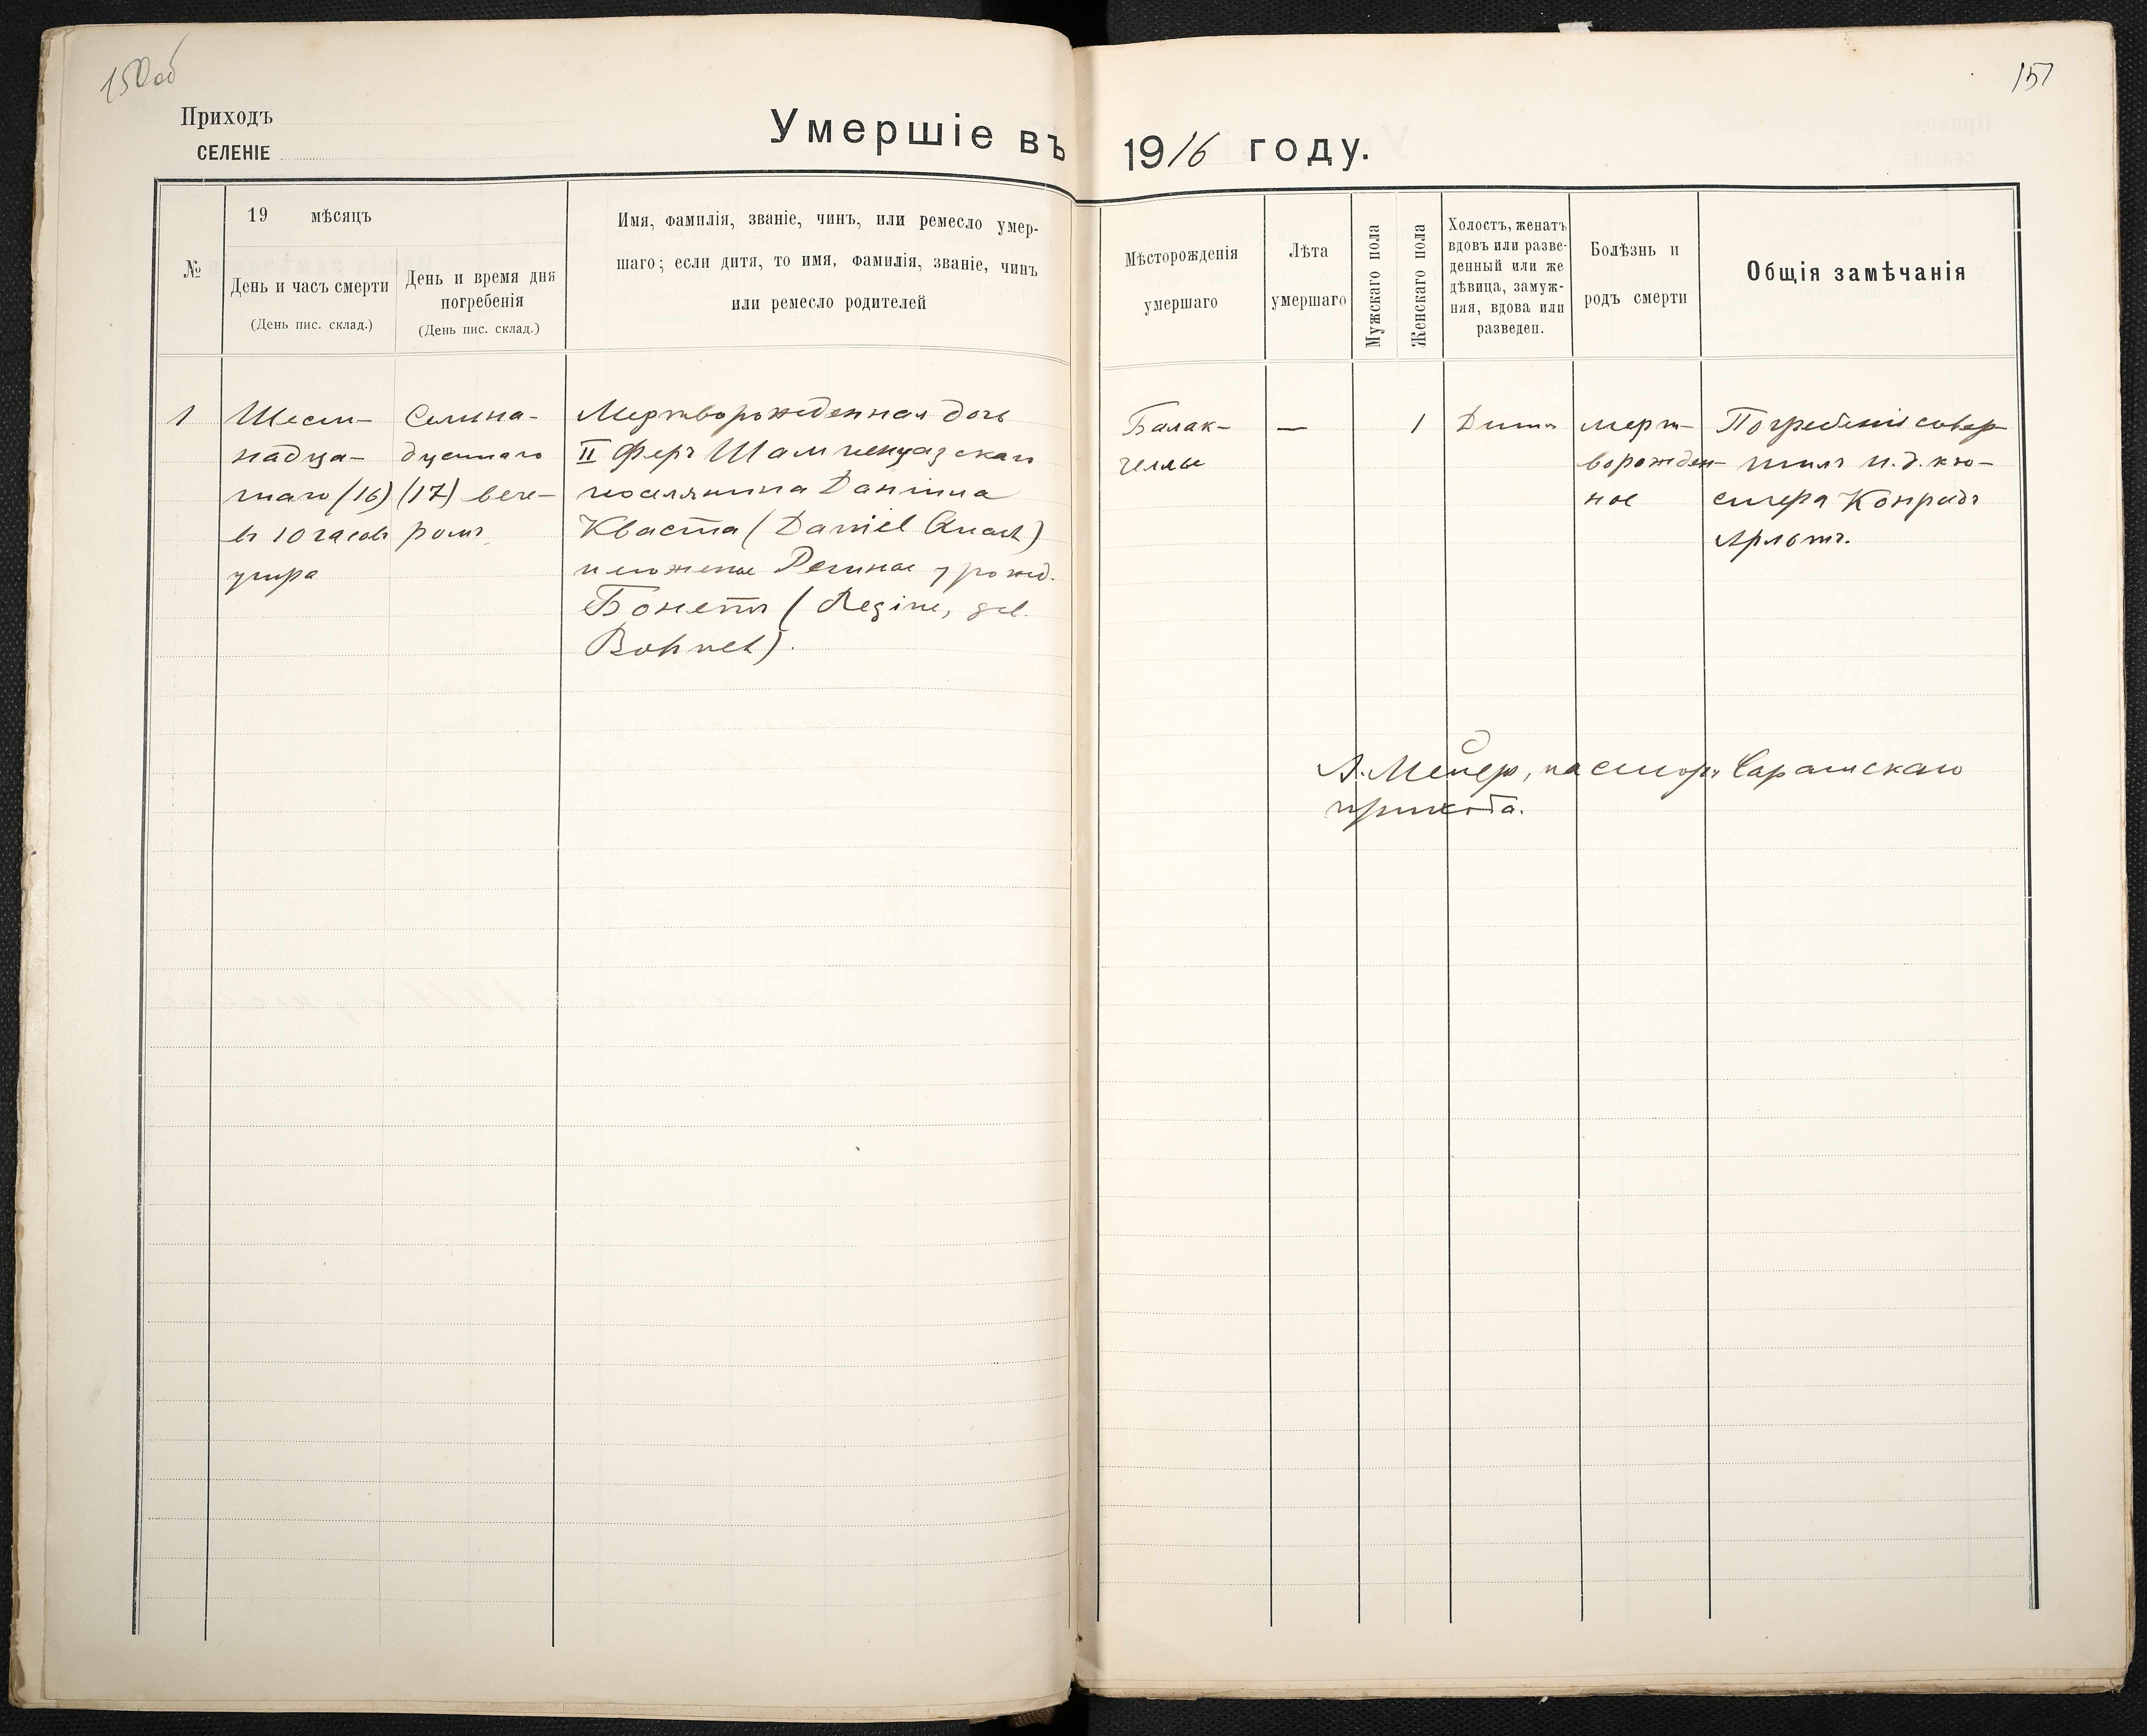 150об
151
Приходъ
СЕЛЕНІЕ
Умершіе въ 1916 году.
№
19 мѣсяцъ
День и часъ смерти
(День пис. склад.)
День и время дня
погребенія
(День пис. склад.)
Имя, фамилія, званіе, чинъ, или ремесло умер-
шаго; если дитя, то имя, фамилія, званіе, чинъ
или ремесло родителей
Мѣсторожденія
умершаго
Лѣта
умершаго
Мужскаго пола
Женскаго пола
Холостъ, женатъ
вдовъ или разве-
денный или же
дѣвица, замуж-
няя, вдова или
разведен.
Болѣзнь и
родъ смерти
Общія замѣчанія
1
Шест-
надца-
таго (16)
въ 10 часовъ
утра
Семна-
дцатаго
(17) вече-
ромъ
Мертворожденная дочь
II Фершампенуазскаго
поселянина Даніила
Кваста (Daniel Quast)
и его жены Регины урожд.
Бонетъ (Regine, geb.
Bohnet).
Балак-
челы
—
1
Дитя
мерт-
ворожден-
ное
Погребеніе совер-
шилъ и. д. кю-
стера Конрадъ
Арльтъ.
А. Мейеръ, пасторъ Саратскаго
прихода.